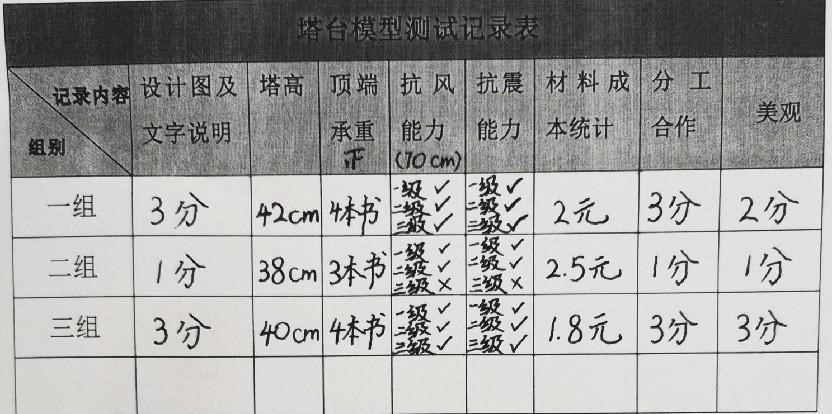 塔台模型测试记录表
记录内容 组别 设计图及文字说明 塔高 顶端承重 正 抗风能力 (10cm) 抗震能力 材料成本统计 分工合作 美观
一组 3分 42cm 4本书 一级✓ 二级✓ 三级✓ 一级✓ 二级✓ 三级✓ 2元 3分 2分
二组 1分 38cm 3本书 一级✓ 二级✓ 三级× 一级✓ 二级✓ 三级× 2.5元 1分 1分
三组 3分 40cm 4本书 一级✓ 二级✓ 三级✓ 一级✓ 二级✓ 三级✓ 1.8元 3分 3分